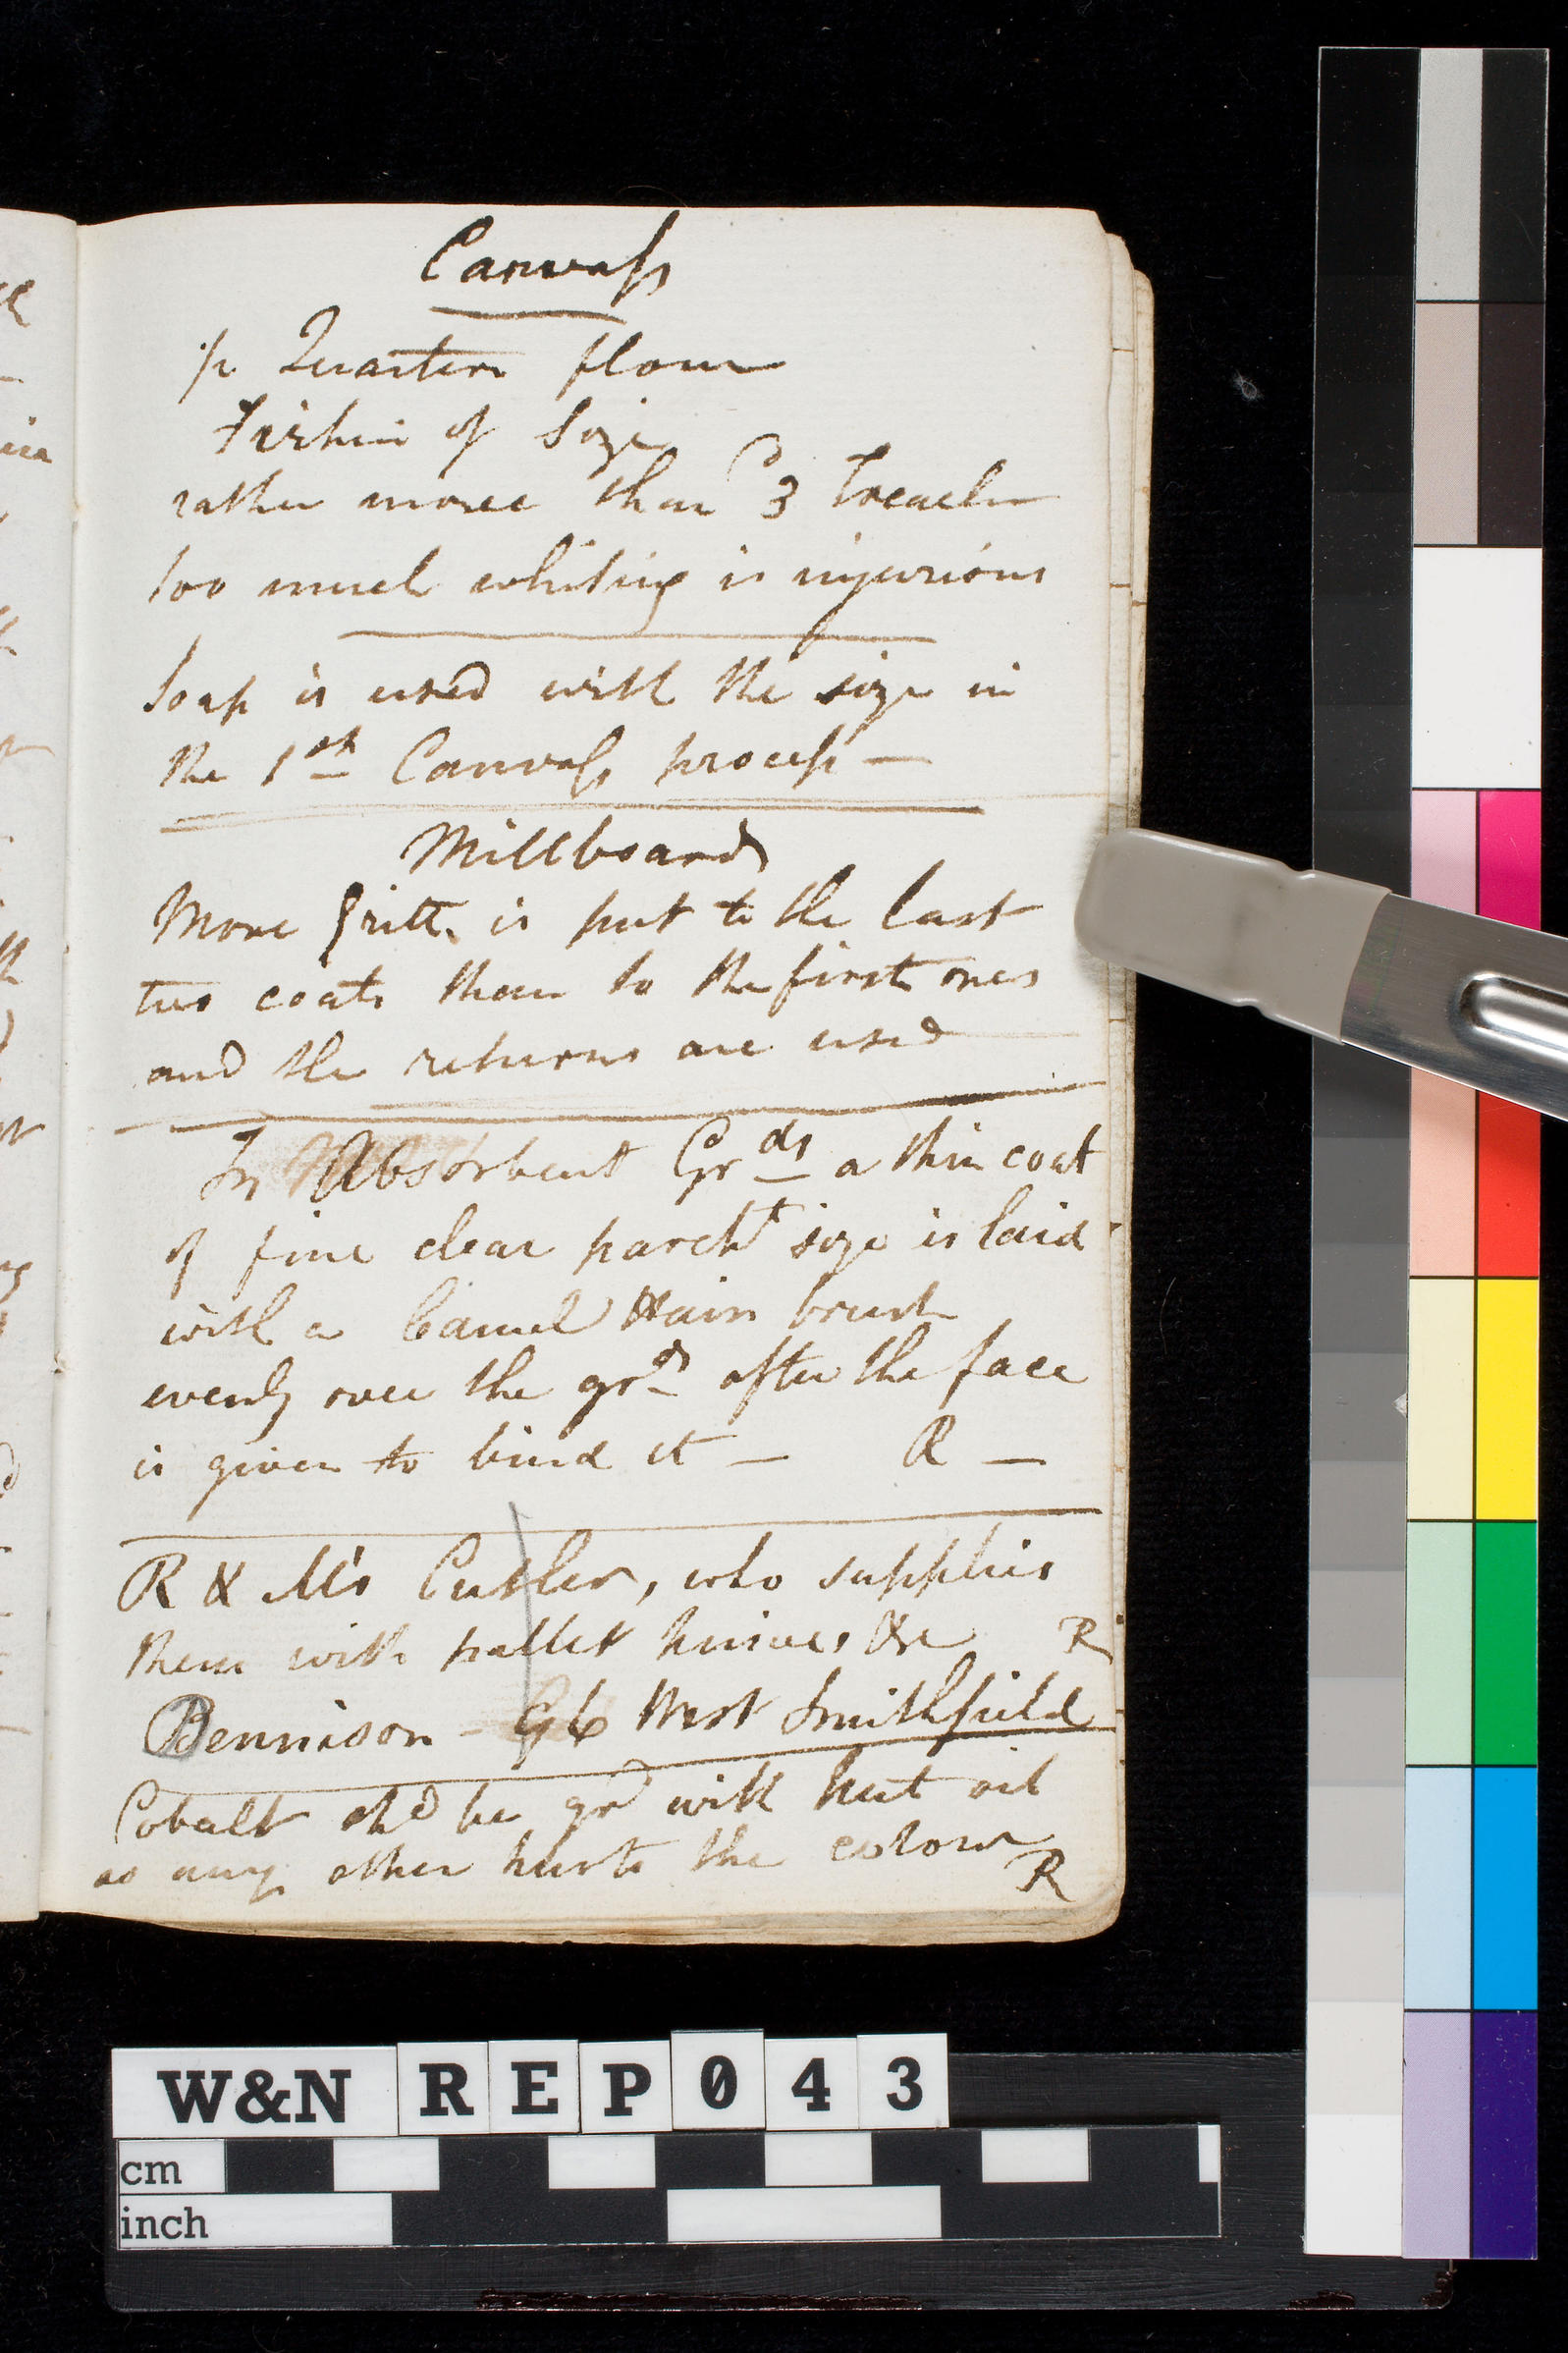 Canvass
p Quartern flour
Firkin of Size
rather more than 3 Treacle
too much whiting is injurious
Soap is used with the size in
the 1st Canvass process —
Millboard
More Gritt. is put to the last
two coats than to the first ones
and the returns are used
In Absorbent Grds a thin coat
of fine clear parcht size is laid
with a Camel Hair brush
evenly over the grd after the face
is given to bind it — R —
R & Mrs Cutler, who supplies
them with pallet knives &c R
Bennison - 96 West Smithfield
Cobalt shd be grd with Nut oil
as any other hurts the colour
R
W&N REP043
cm
inch